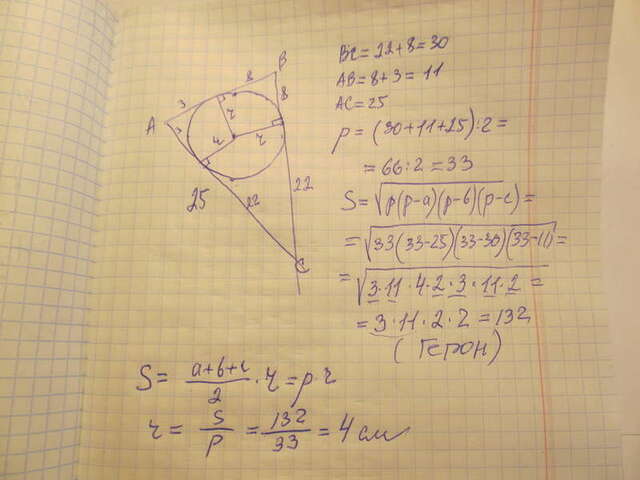 B
8
8
3
A
3
r
r
r
22
25
22
C
BC = 22+8 = 30
AB = 8+3 = 11
AC = 25
p = (30+11+25):2 =
= 66:2 = 33
S = √p(p-a)(p-b)(p-c) =
= √33(33-25)(33-30)(33-11) =
= √3·11·4·2·3·11·2 =
= 3·11·2·2 = 132
(Герон)
S = a+b+c/2 · r = pr
r = S/P = 132/33 = 4 см